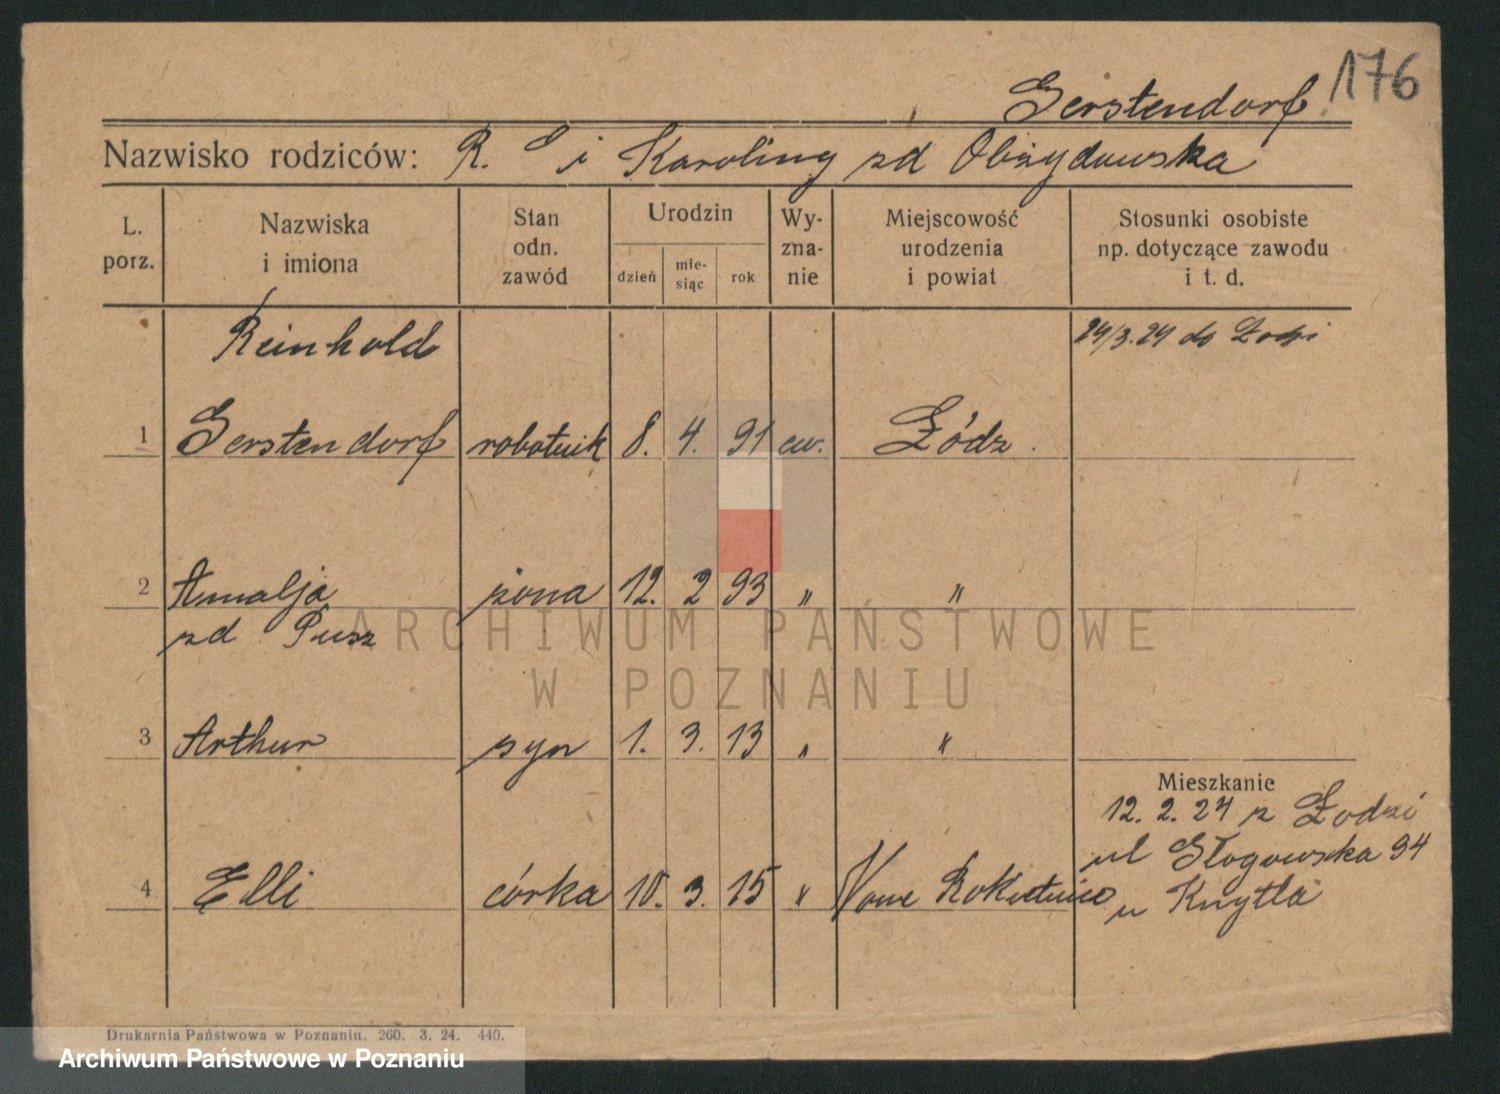 176
Gerstendorf
Nazwisko rodziców: R. G i Karoliny zd Obżydowska
L. porz.
Nazwiska i imiona
Stan odn. zawód
Urodzin
dzień
mie-siąc
rok
Wy-zna-nie
Miejscowość urodzenia i powiat
Stosunki osobiste np. dotyczące zawodu i t. d.
Reinhold
24/3.24 do Łodzi
1 Gerstendorf robotnik 8. 4. 91 ew. Łódz.
2 Amalja żona 12. 2 93 " "
zd Pusz
3 Arthur syn 1. 3. 13 " "
Mieszkanie
12. 2. 24 z Łodzi
ul Głogowska 94
4 Elli córka 10. 3. 15 " Nowe Rokicie
u Knytla
Drukarnia Państwowa w Poznaniu. 260. 3. 24. 440.
ARCHIWUM PAŃSTWOWE
W POZNANIU
Archiwum Państwowe w Poznaniu